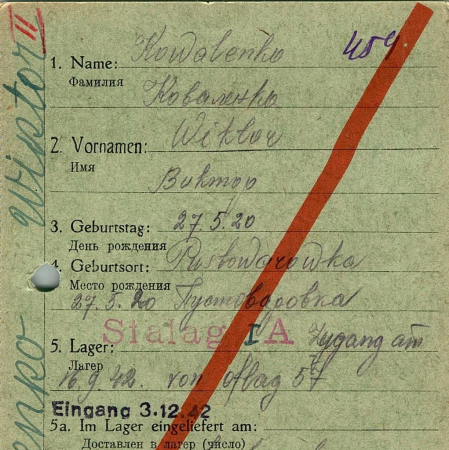 II
459
1. Name: Kowalenko
Фамилия
Коваленко
2. Vornamen: Wiktor
Имя
Виктор
3. Geburtstag: 27.5.20
День рождения
4. Geburtsort: Pustowarowka
Место рождения
27.5.20 Пустоваровка
Stalag I A Zugang am
5. Lager:
Лагерь
16.9.42. von Oflag 57
Eingang 3.12.42
5a. Im Lager eingeliefert am:
Доставлен в лагерь (число)
enko Wiktor